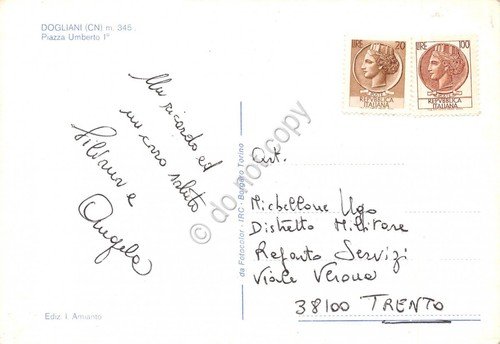 DOGLIANI (CN) m. 345
Piazza Umberto I°
Un ricordo ed
un caro saluto
Silvana e
Angela
Ediz. I. Amianto
da Fotocolor - IRC - Borgaro Torino
LIRE 20
REPVBBLICA
ITALIANA
LIRE 100
REPVBBLICA
ITALIANA
Michellone Ugo
Distretto Militare
Reparto Servizi
Viale Verona
38100 TRENTO
© do not copy